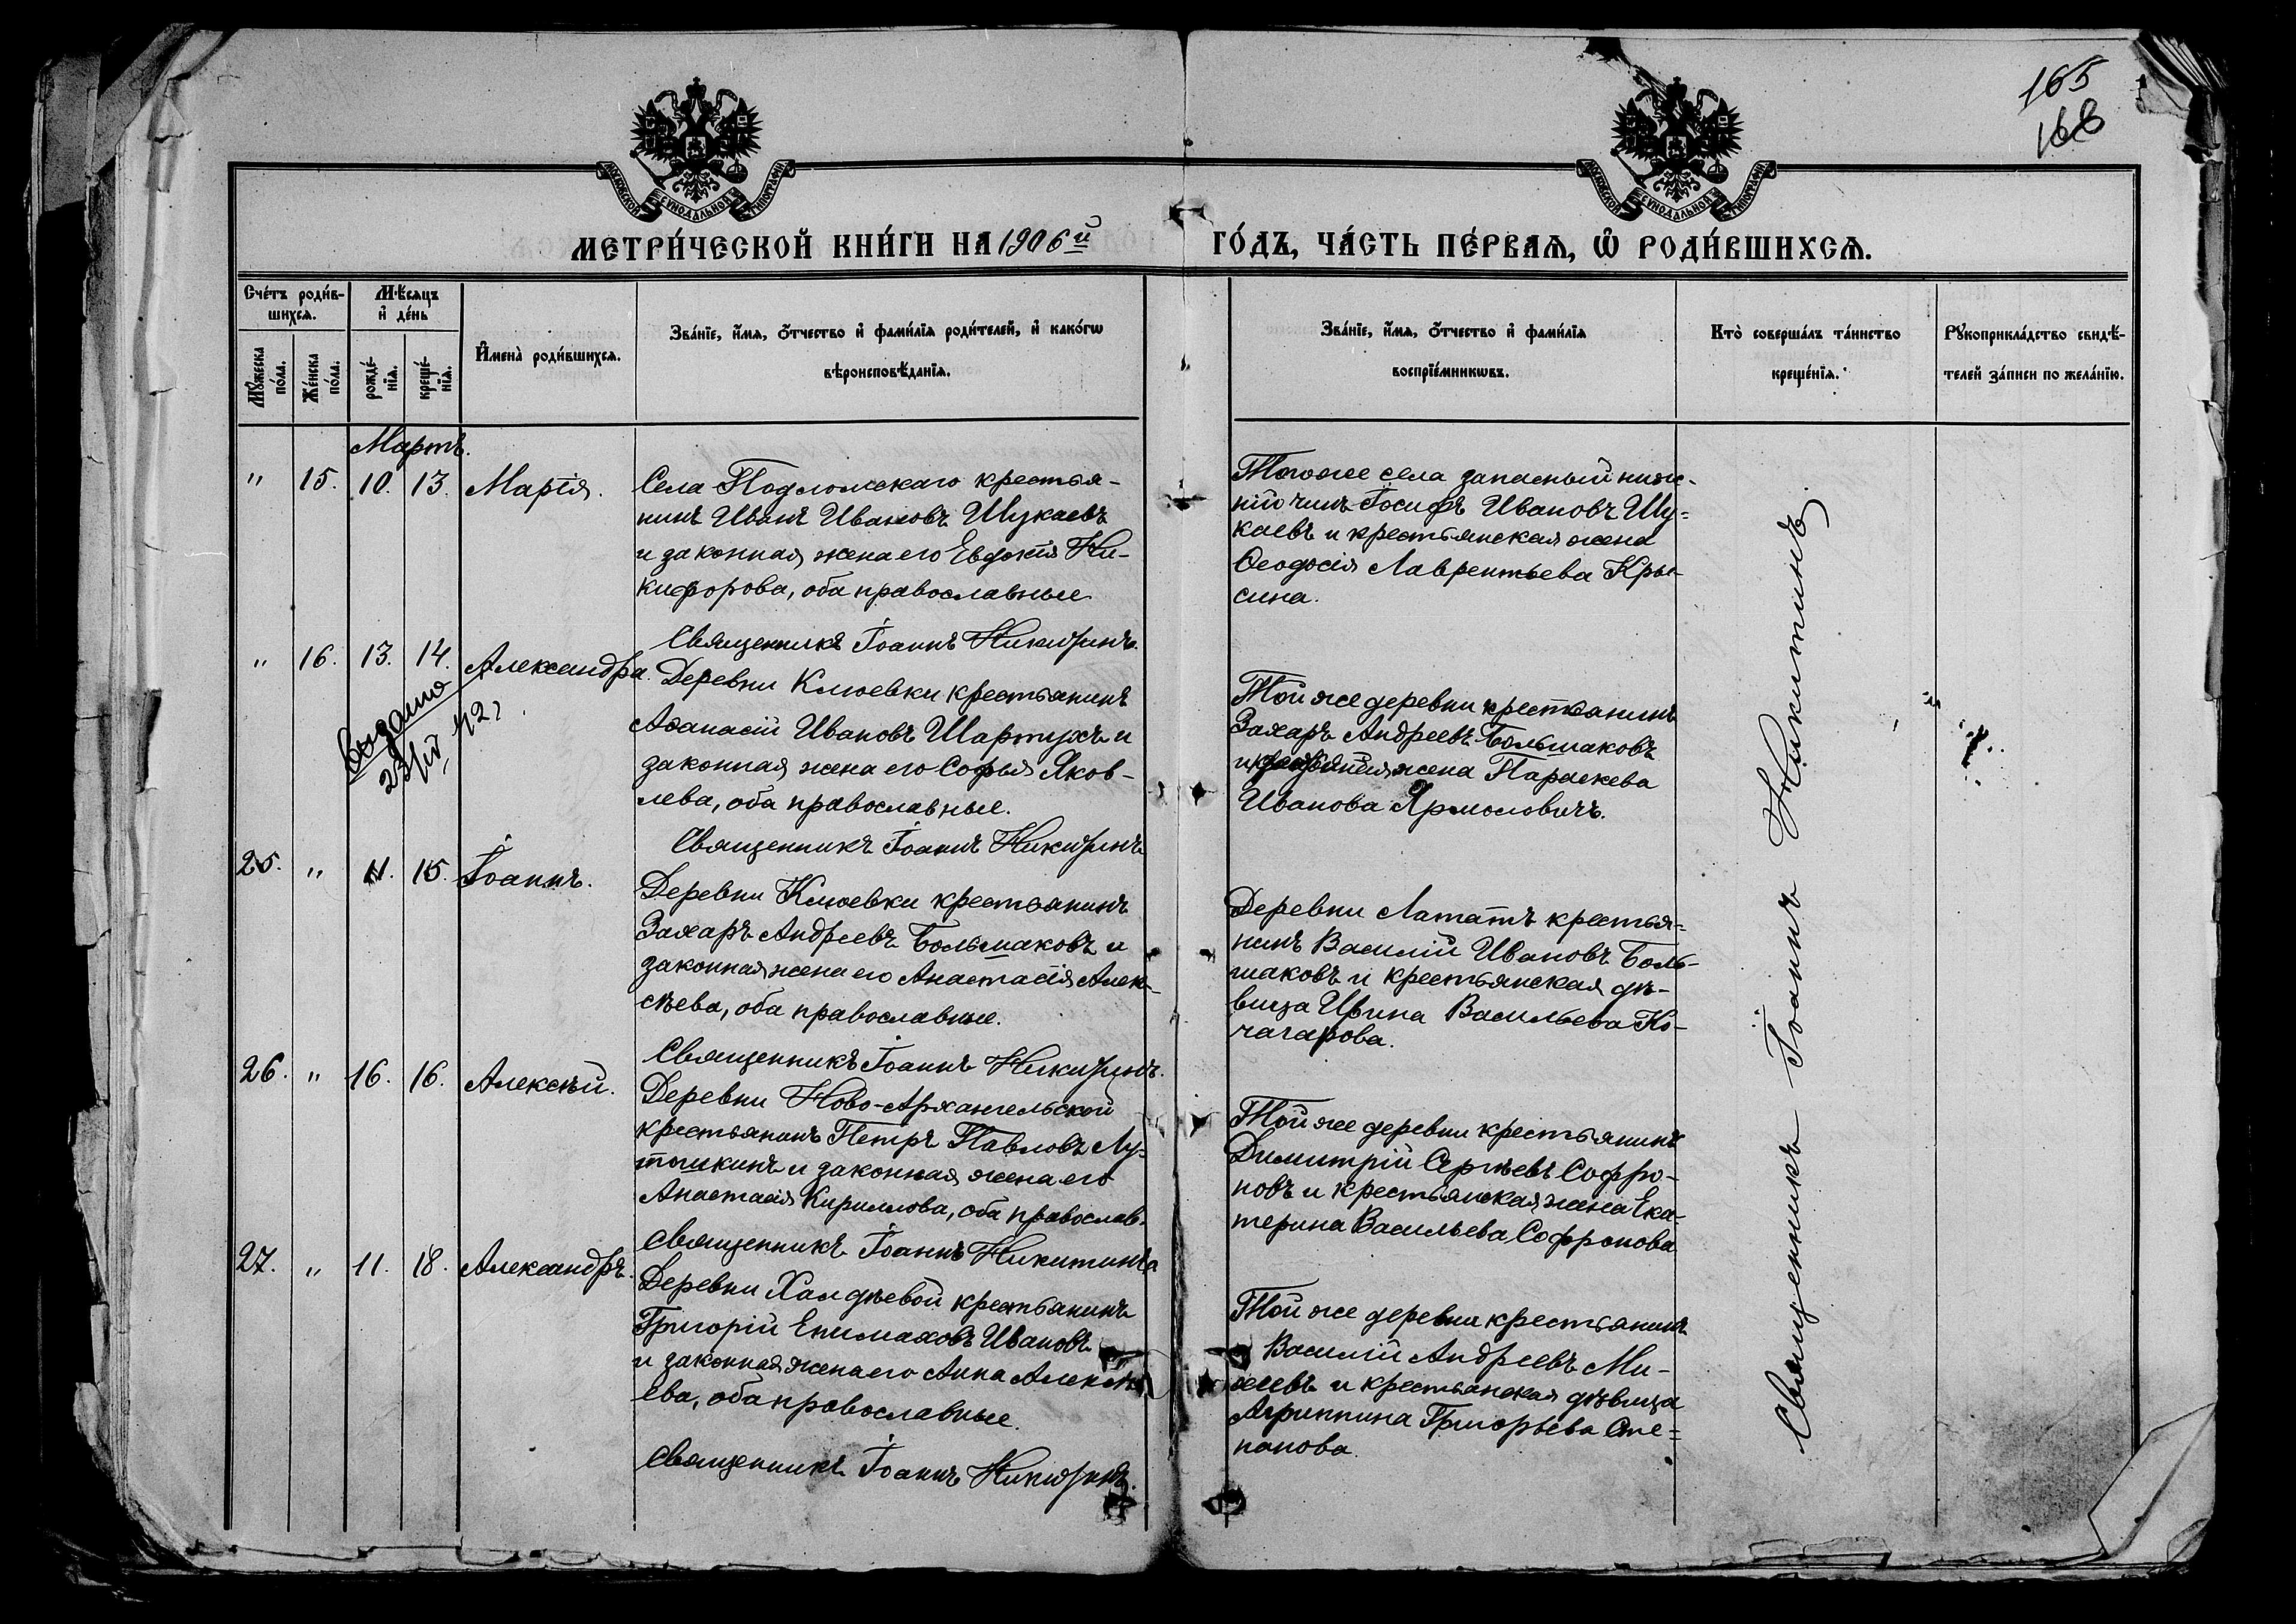 165
168
МОСКОВСКОЙ СѴНОДАЛЬНОЙ ТИПОГРАФІИ
МОСКОВСКОЙ СѴНОДАЛЬНОЙ ТИПОГРАФІИ
МЕТРИ́ЧЕСКОЙ КНИ́ГИ НА 1906й
ГО́ДЪ, ЧА́СТЬ ПЕ́РВАѦ, Ѽ РОДИ́ВШИХСѦ.
Сче́тъ роди́в-
шихсѧ.
Мѣ́сѧцъ
и҆ де́нь
Мꙋ́жеска
по́ла.
Же́нска
по́ла.
рожде́-
нїѧ.
креще́-
нїѧ.
И҆мена̀ роди́вшихсѧ.
Зва́нїе, и҆́мѧ, ѻ҆́тчество и҆ фами́лїѧ роди́телей, и҆ како́гѡ
вѣроисповѣ́данїѧ.
Зва́нїе, и҆́мѧ, ѻ҆́тчество и҆ фами́лїѧ
воспрїе́мникѡвъ.
Кто̀ соверша́лъ та́инство
креще́нїѧ.
Рꙋкоприкла́дство свидѣ́-
телей за́писи по жела́нїю.
Мартъ.
" 15. 10. 13. Марія.
Села Подломскаго крестья-
нинъ Иванъ Ивановъ Шукаевъ
и законная жена его Евдокія Ни-
кифорова, оба православные
Священникъ Іоаннъ Никитинъ.
Тогоже села запасный ниж-
ній чинъ Іосифъ Ивановъ Шу=
каевъ и крестьянская жена
Ѳеодосія Лаврентьева Кры-
сина.
" 16. 13. 14. Александра.
выдано
23/IV 42 г
Деревни Клюевки крестьянинъ
Аѳанасій Ивановъ Шартухъ и
законная жена его Софья Яков-
лева, оба православные.
Священникъ Іоаннъ Никитинъ
Той же деревни крестьянинъ
Захаръ Андреевъ Большаковъ
и жена Параскева
Иванова Ярмоловичъ.
25. " 11. 15. Іоаннъ.
Деревни Клюевки крестьянинъ
Захаръ Андреевъ Большаковъ и
законная жена его Анастасія Алек-
сѣева, оба православные.
Священникъ Іоаннъ Никитинъ.
Деревни Лататъ крестья=
нинъ Василій Ивановъ Боль-
шаковъ и крестьянская дѣ-
вица Ирина Васильева Ко-
чагарова.
26. " 16. 16. Алексѣй.
Деревни Ново-Архангельской
крестьянинъ Петръ Павловъ Лу-
тошкинъ и законная жена его
Анастасія Кириллова, оба православ.
Священникъ Іоаннъ Никитинъ
Той же деревни крестьянинъ
Димитрій Сергѣевъ Софро-
новъ и крестьянская жена Ека-
терина Васильева Софронова
27. " 11. 18. Александръ.
Деревни Халдѣевой крестьянинъ
Григорій Епимаховъ Ивановъ
и законная жена его Анна Алексѣ
ева, оба православные.
Священникъ Іоаннъ Никитинъ.
Той же деревни крестьянинъ
Василій Андреевъ Ми-
хеевъ и крестьянская дѣвица
Агриппина Григорьева Сте=
панова.
Священникъ Іоаннъ Никитинъ